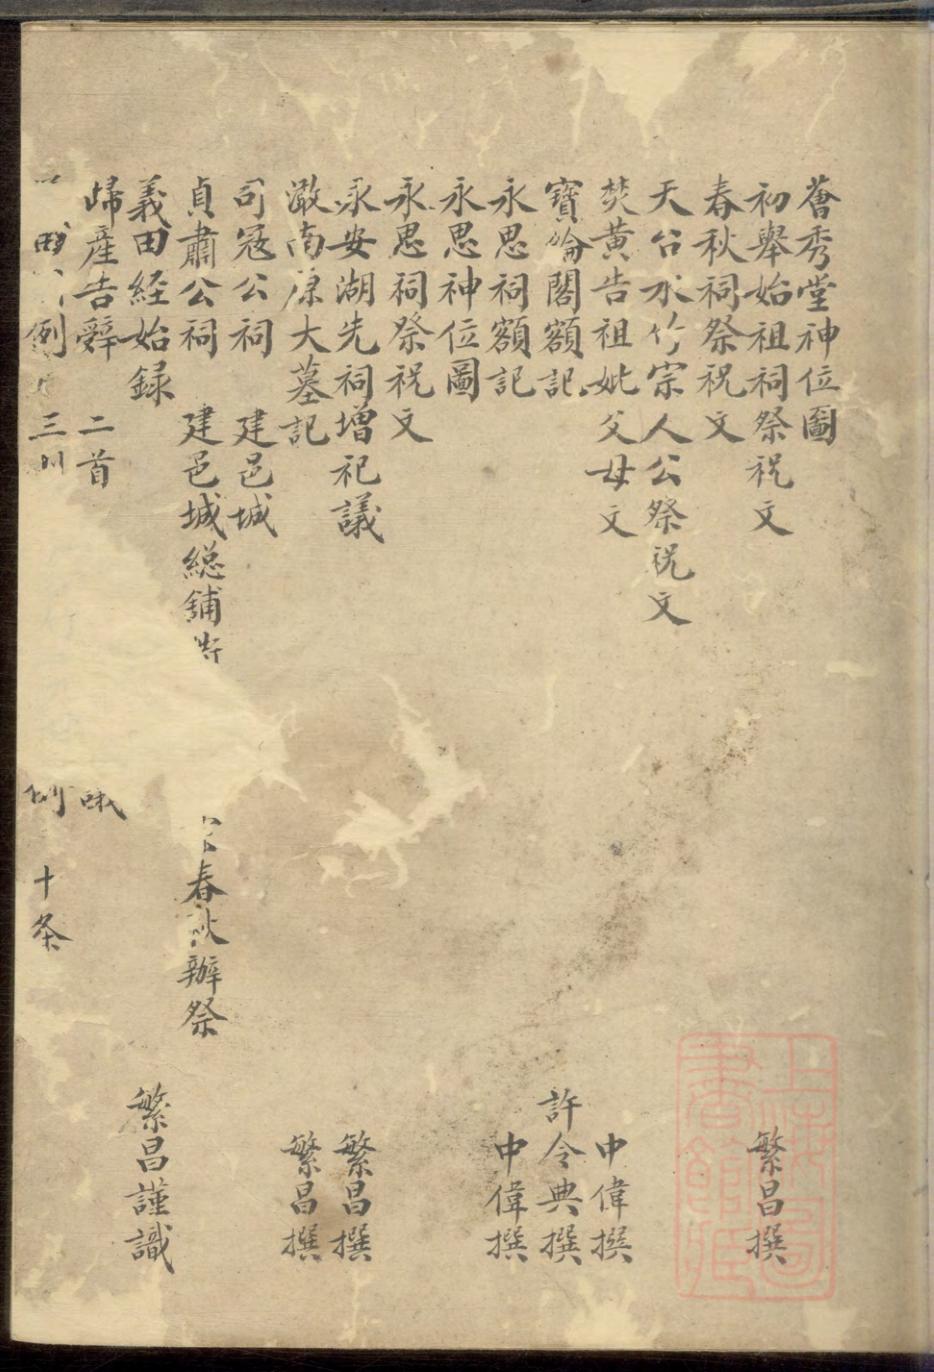 薈秀堂神位圖
初舉始祖祠祭祝文 繁昌撰
春秋祠祭祝文
天台水竹宗人公祭祝文
焚黃告祖妣父母文 中偉撰
寶綸閣額記 許令典撰
永思祠額記 中偉撰
永思神位圖
永思祠祭祝文
永安湖先祠增祀議 繁昌撰
澉南原大墓記 繁昌撰
司寇公祠 建邑城
貞肅公祠 建邑城総鋪 春秋辦祭
義田経始録 繁昌謹識
歸產告辭 二首
例 三 例 十条
上海圖書館藏